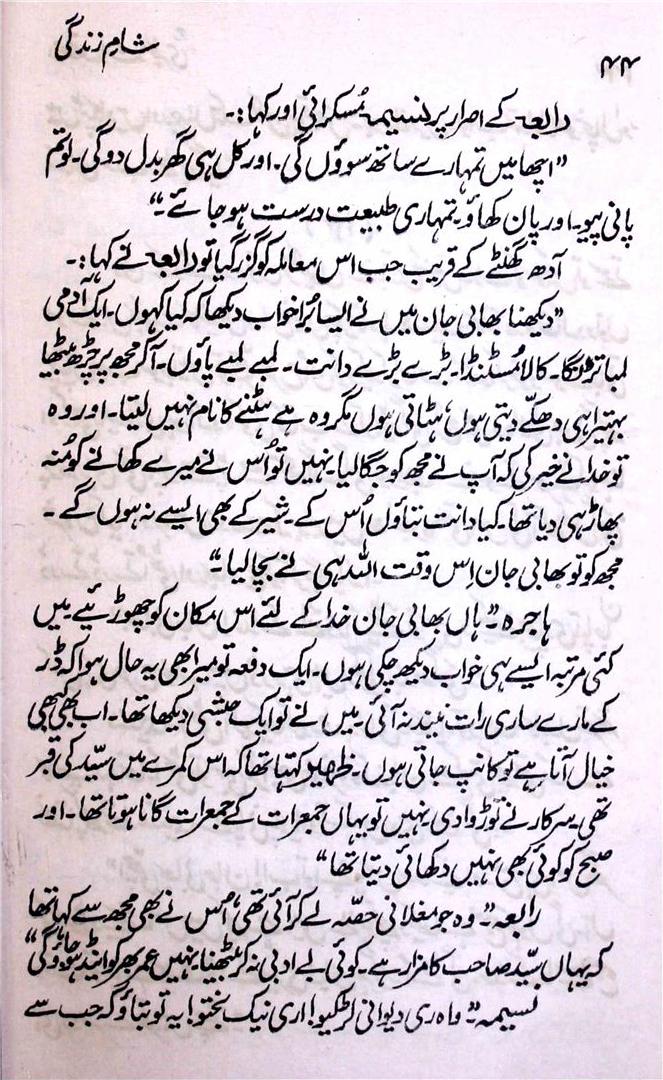 ۴۴
شامِ زندگی
رابعہ کے اصرار پر نسیمہ مُسکرائی اور کہا:۔
”اچھا میں تمہارے ساتھ سوؤں گی۔ اور کل ہی گھر بدل دو گی۔ لو تم
پانی پیو۔ اور پان کھاؤ۔ تمہاری طبیعت درست ہو جائے۔“
آدھ گھنٹے کے قریب جب اس معاملہ کو گزر گیا تو رابعہ نے کہا:۔
”دیکھنا بھابی جان میں نے ایسا بُرا خواب دیکھا کہ کیا کہوں۔ ایک آدمی
لمبا تڑنگا۔ کالا مُسٹنڈا۔ بڑے بڑے دانت۔ لمبے لمبے پاؤں۔ آ کر مجھ پر چڑھ بیٹھا
بہتیرا ہی دھکّے دیتی ہوں، ہٹاتی ہوں مگر وہ ہے ہٹنے کا نام نہیں لیتا۔ اور وہ
تو خدا نے خیر کی کہ آپ نے مجھ کو جگا لیا۔ نہیں تو اُس نے میرے کھانے کو مُنہ
پھاڑ ہی دیا تھا۔ کیا دانت بتاؤں اُس کے۔ شیر کے بھی ایسے نہ ہوں گے۔
مجھ کو تو بھابی جان اِس وقت اللہ ہی نے بچا لیا۔“
ہاجرہ ”۔ ہاں بھابی جان خدا کے لئے اس مکان کو چھوڑئیے میں
کئی مرتبہ ایسے ہی خواب دیکھ چکی ہوں۔ ایک دفعہ تو میرا بھی یہ حال ہوا کہ ڈر
کے مارے ساری رات نیند نہ آئی۔ میں نے تو ایک حبشی دیکھا تھا۔ اب بھی کبھی
خیال آتا ہے تو کانپ جاتی ہوں۔ ظہیر کہتا تھا کہ اس کمرے میں سیّد کی قبر
تھی سرکار نے تڑوا دی نہیں تو یہاں جمعرات کے جمعرات گانا ہوتا تھا۔ اور
صبح کو کوئی بھی نہیں دکھائی دیتا تھا“
رابعہ ”۔ وہ جو مغلانی حصّہ لے کر آئی تھی، اُس نے بھی مجھ سے کہا تھا
کہ یہاں سیّد صاحب کا مزار ہے۔ کوئی بے ادبی نہ کر بیٹھینا نہیں عمر بھر کو اپنڈ ہو جاؤ گی“
نسیمہ ”۔ واہ ری دیوانی لڑکیو! اری نیک بختو! یہ تو بتاؤ کہ جب سے